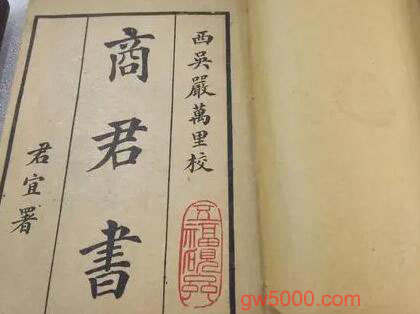 西吳嚴萬里校
商君書
君宜署
gw5000.com